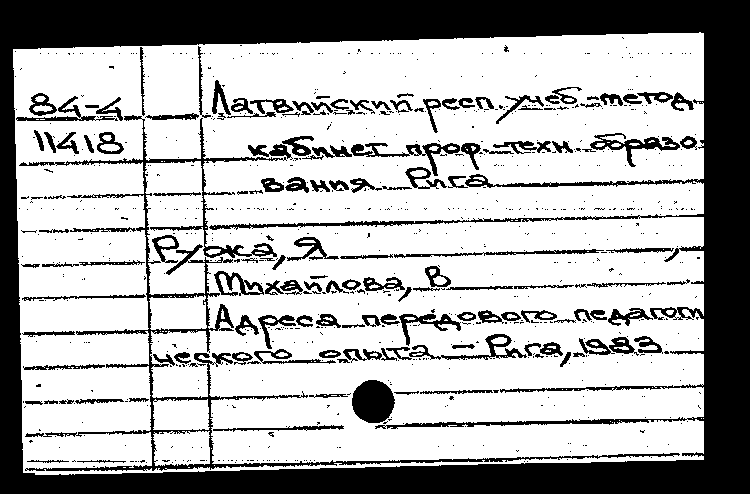 84-4 Латвийский респ. учеб.-метод.
11418 кабинет проф.-техн. образо-
вания. Рига
Ружа, Я
Михайлова, В
Адреса передового педагоги
ческого опыта – Рига, 1983